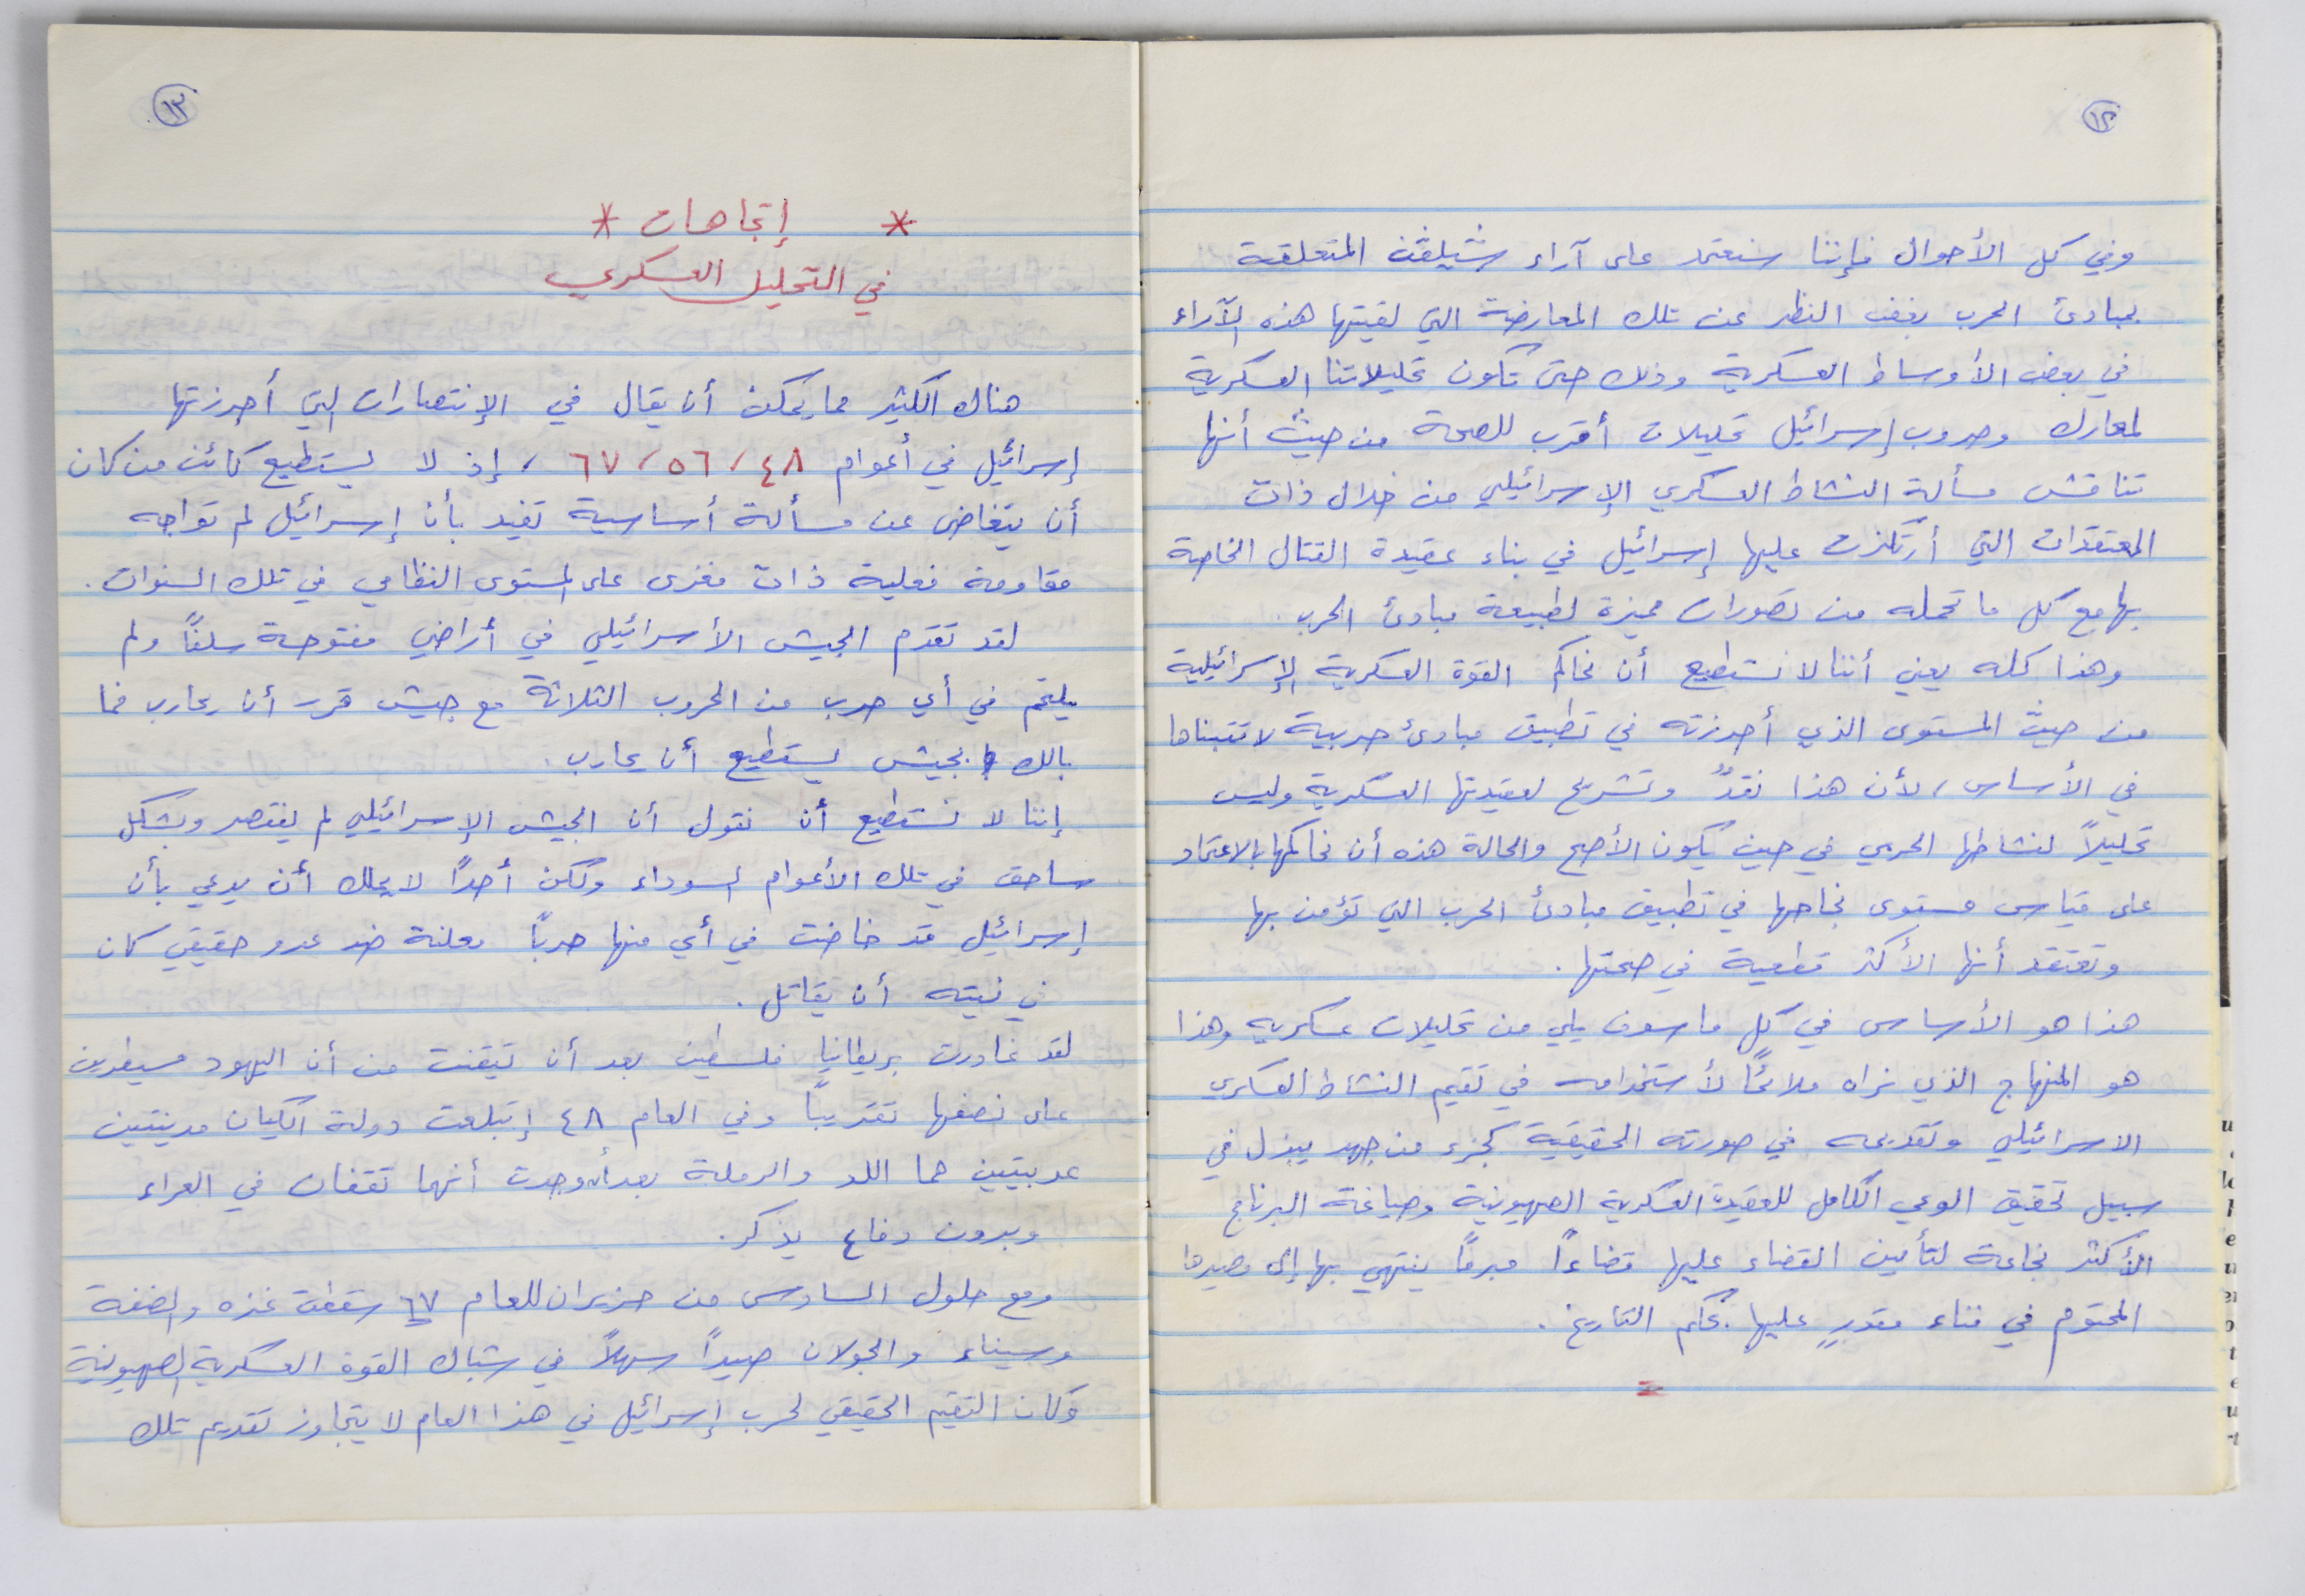 ١٢
وفي كل الأحوال فإننا سنعتمد على آراء شيلفن المتعلقة
بمبادئ الحرب بغض النظر عن تلك المعارضة التي لقيتها هذه الآراء
في بعض الأوساط العسكرية وذلك حتى تكون تحليلاتنا العسكرية
لمعارك وحروب إسرائيل تحليلات أقرب للصحة من حيث أنها
تناقش مسألة النشاط العسكري الإسرائيلي من خلال ذات
المعتقدات التي أرتكزت عليها إسرائيل في بناء عقيدة القتال الخاصة
بها مع كل ما تحمله من تصورات مميزة لطبيعة مبادئ الحرب .
وهذا كله يعني أننا لا نستطيع أن نحاكم القوة العسكرية الإسرائيلية
من حيث المستوى الذي أحرزته في تطبيق مبادئ حربية لا تتبناها
في الأساس ، لأن هذا نقدٌ وتشريح لعقيدتها العسكرية وليس
تحليلاً لنشاطها الحربي في حين يكون الأصح والحالة هذه أن نحاكمها بالاعتماد
على قياس مستوى نجاحها في تطبيق مبادئ الحرب التي تؤمن بها
وتعتقد أنها الأكثر قطعية في صحتها .
هذا هو الأساس في كل ما سوف يلي من تحليلات عسكريه وهذا
هو المنهاج الذي نراه ملائمًا لأستخدامه في تقيم النشاط العسكري
الاسرائيلي وتقديمه في صورته الحقيقية كجزء من جهد يبذل في
سبيل تحقيق الوعي الكامل للعقيدة العسكرية الصهيونية وصياغة البرنامج
الأكثر نجاعة لتأمين القضاء عليها قضاءاً مبرمًا ينتهي بها إلى مصيرها
المحتوم في فناء مقدرٍ عليها بحكم التاريخ .
=
١٣
* إتجاهات *
في التحليل العسكري
هناك الكثير مما يمكن أن يقال في الإنتصارات التي أحرزتها
إسرائيل في أعوام ٤٨ / ٥٦ / ٦٧ ، إذ لا يستطيع كائن من كان
أن يتغاضى عن مسألة أساسية تفيد بأن إسرائيل لم تواجه
مقاومة فعلية ذات مغزى على المستوى النظامي في تلك السنوات .
لقد تقدم الجيش الأسرائيلي في أراضي مفتوحة سلفًا ولم
يلتحم في أي حرب من الحروب الثلاثة مع جيش قرر أن يحارب فما
بالك بجيش يستطيع أن يحارب .
إننا لا نستطيع أن نقول أن الجيش الإسرائيلي لم ينتصر وبشكل
ساحق في تلك الأعوام السوداء ولكن أحداً لا يملك أن يدعي بأن
إسرائيل قد خاضت في أي منها حربًا معلنة ضد عدو حقيقي كان
في نيته أن يقاتل .
لقد غادرت بريطانيا فلسطين بعد أن تيقنت من أن اليهود مسيطرين
على نصفها تقريبًا وفي العام ٤٨ إبتلعت دولة الكيان مدينتين
عربيتين هما اللد والرملة بعد أن وجدت أنهما تقفان في العراء
وبدون دفاع يذكر .
ومع حلول السادس من حزيران للعام ٦٧ سقطت غزه والضفة
وسيناء والجولان صيداً سهلاً في شباك القوة العسكرية الصهيونية
وكان التقيم الحقيقي لحرب إسرائيل في هذا العام لا يتجاوز تقديم تلك